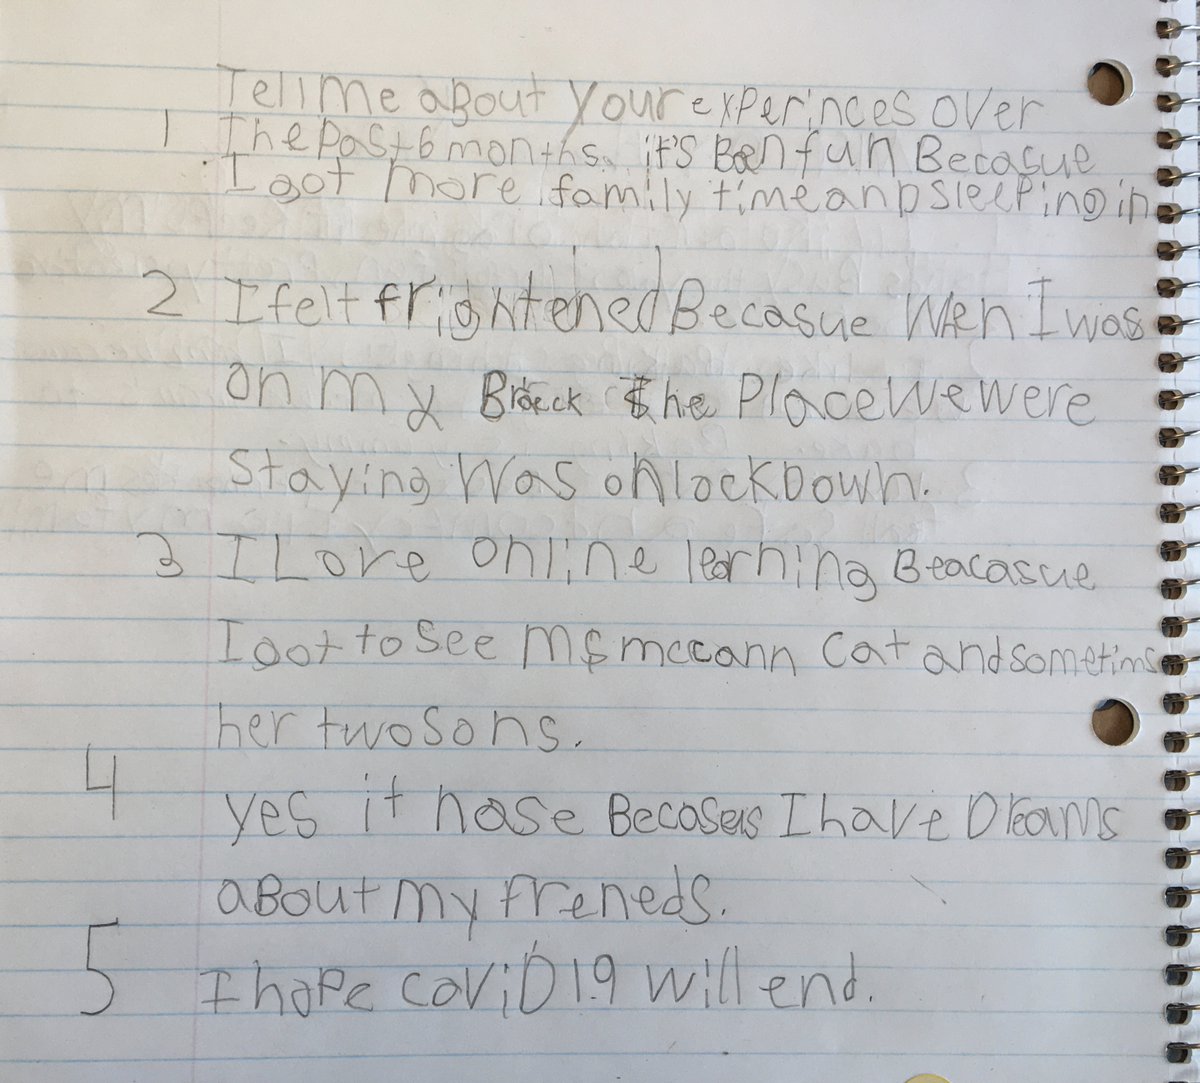 Tell me about your experinces over
1 The past 6 months. it's Been fun Becasue
I got more family time and sleeping in
2 I felt frightened Becasue When I was
on my Breck the Place we were
staying Was on lockDown.
3 I Love online learning Beacasue
I got to see Ms mccann Cat and sometims
her two sons.
4 yes it hase Becoses I have Dreams
aBout my freneds.
5 I hope coviD 19 will end.